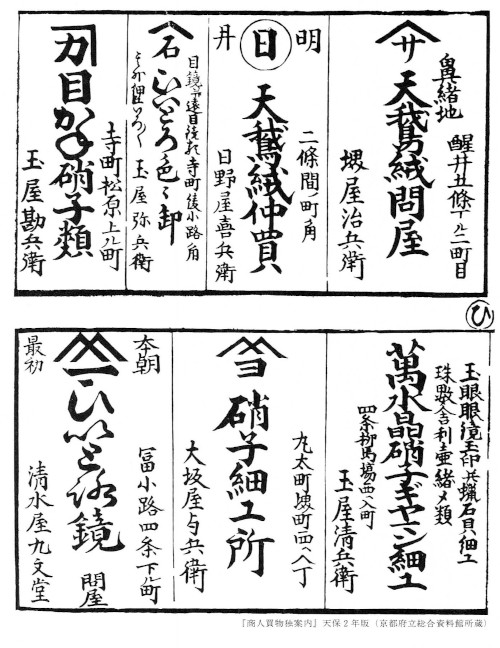 サ
鼻緒地
天鵞絨問屋
醒井五條下ル二町目
堺屋治兵衛
明
日
井
天鵞絨仲買
二條間ノ町角
日野屋喜兵衛
石
びいどろ色々卸
寺町綾小路角
玉屋弥兵衛
力
目がね硝子類
寺町松原上ル町
玉屋勘兵衛
ひ
玉眼眼鏡玉印共蝋石貝細工
珠数舎利壷緒〆類
萬水晶硝子ギヤマン細工
四条柳馬場西へ入町
玉屋清兵衛
ヨ
硝子細工所
丸太町堺町西へ入丁
大坂屋与兵衛
本朝
最初
一
びいどろ鏡
問屋
冨小路四条下ル町
清水屋九文堂
『商人買物独案内』天保2年版（京都府立総合資料館所蔵）